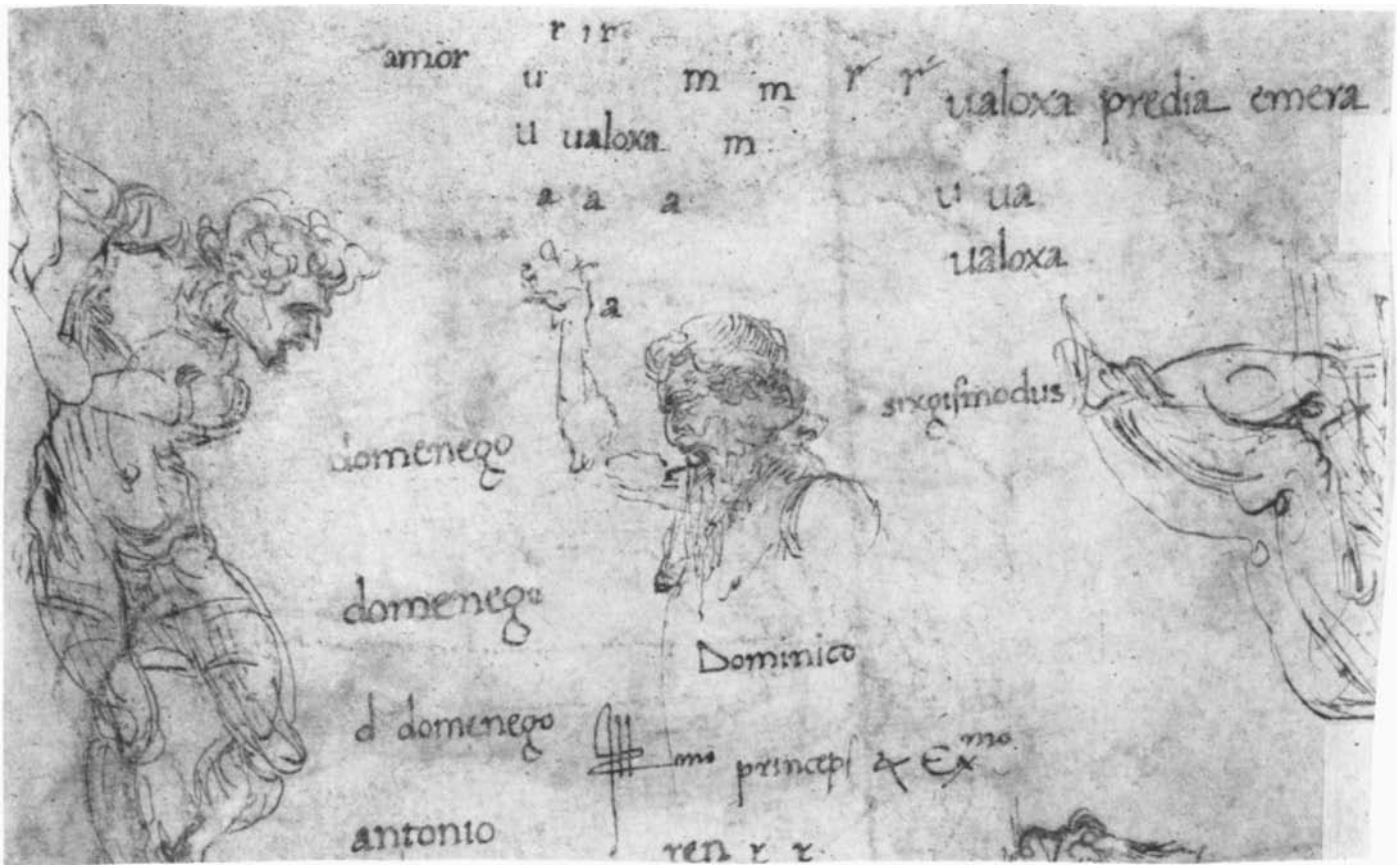 amor
r i r
u m m r r
ualoxa predia emera
u ualoxa m
a a a
u ua
ualoxa
a
sixgismodus
domenego
domenego
Dominico
d domenego
mo princeps & Exmo
antonio
ren r r